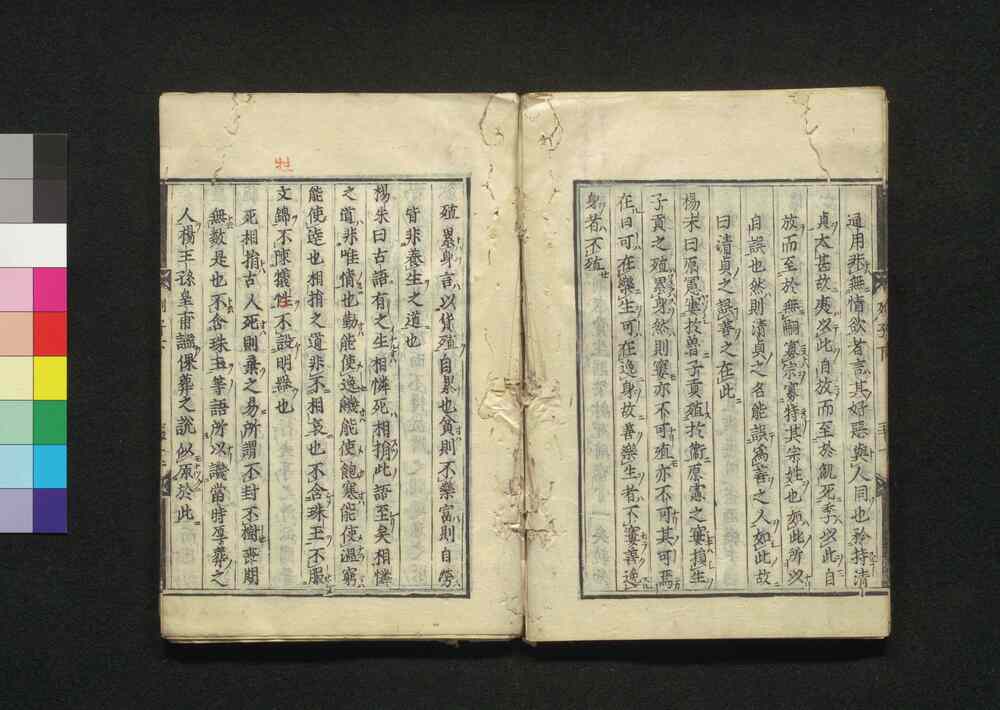 通用非無情欲者言其好惡與人同也矜持清
貞太甚故夷以此自放而至於飢死季以此自
放而至於無嗣寡宗寡特其宗姓也如此所以
自誤也然則清貞之名能誤爲善之人如此故
曰清貞之誤善之在此
楊朱曰原憲窶於魯子貢殖於衞原憲之窶損生
子貢之殖累身然則窶亦不可殖亦不可其可焉
在曰可在樂生可在逸身故善樂生者不窶善逸
身者不殖
殖累身言以貨殖自累也貧則不樂富則自勞
皆非養生之道也
楊朱曰古語有之生相憐死相捐此語至矣相憐
之道非唯情也勤能使逸饑能使飽寒能使溫窮
能使達也相捐之道非不相哀也不含珠玉不服
文錦不陳犧牲不設明器也
死相捐古人死則棄之易所謂不封不樹喪期
無數是也不含珠玉等語所以譏當時厚葬之
人楊王孫皇甫謐倮葬之說似原於此